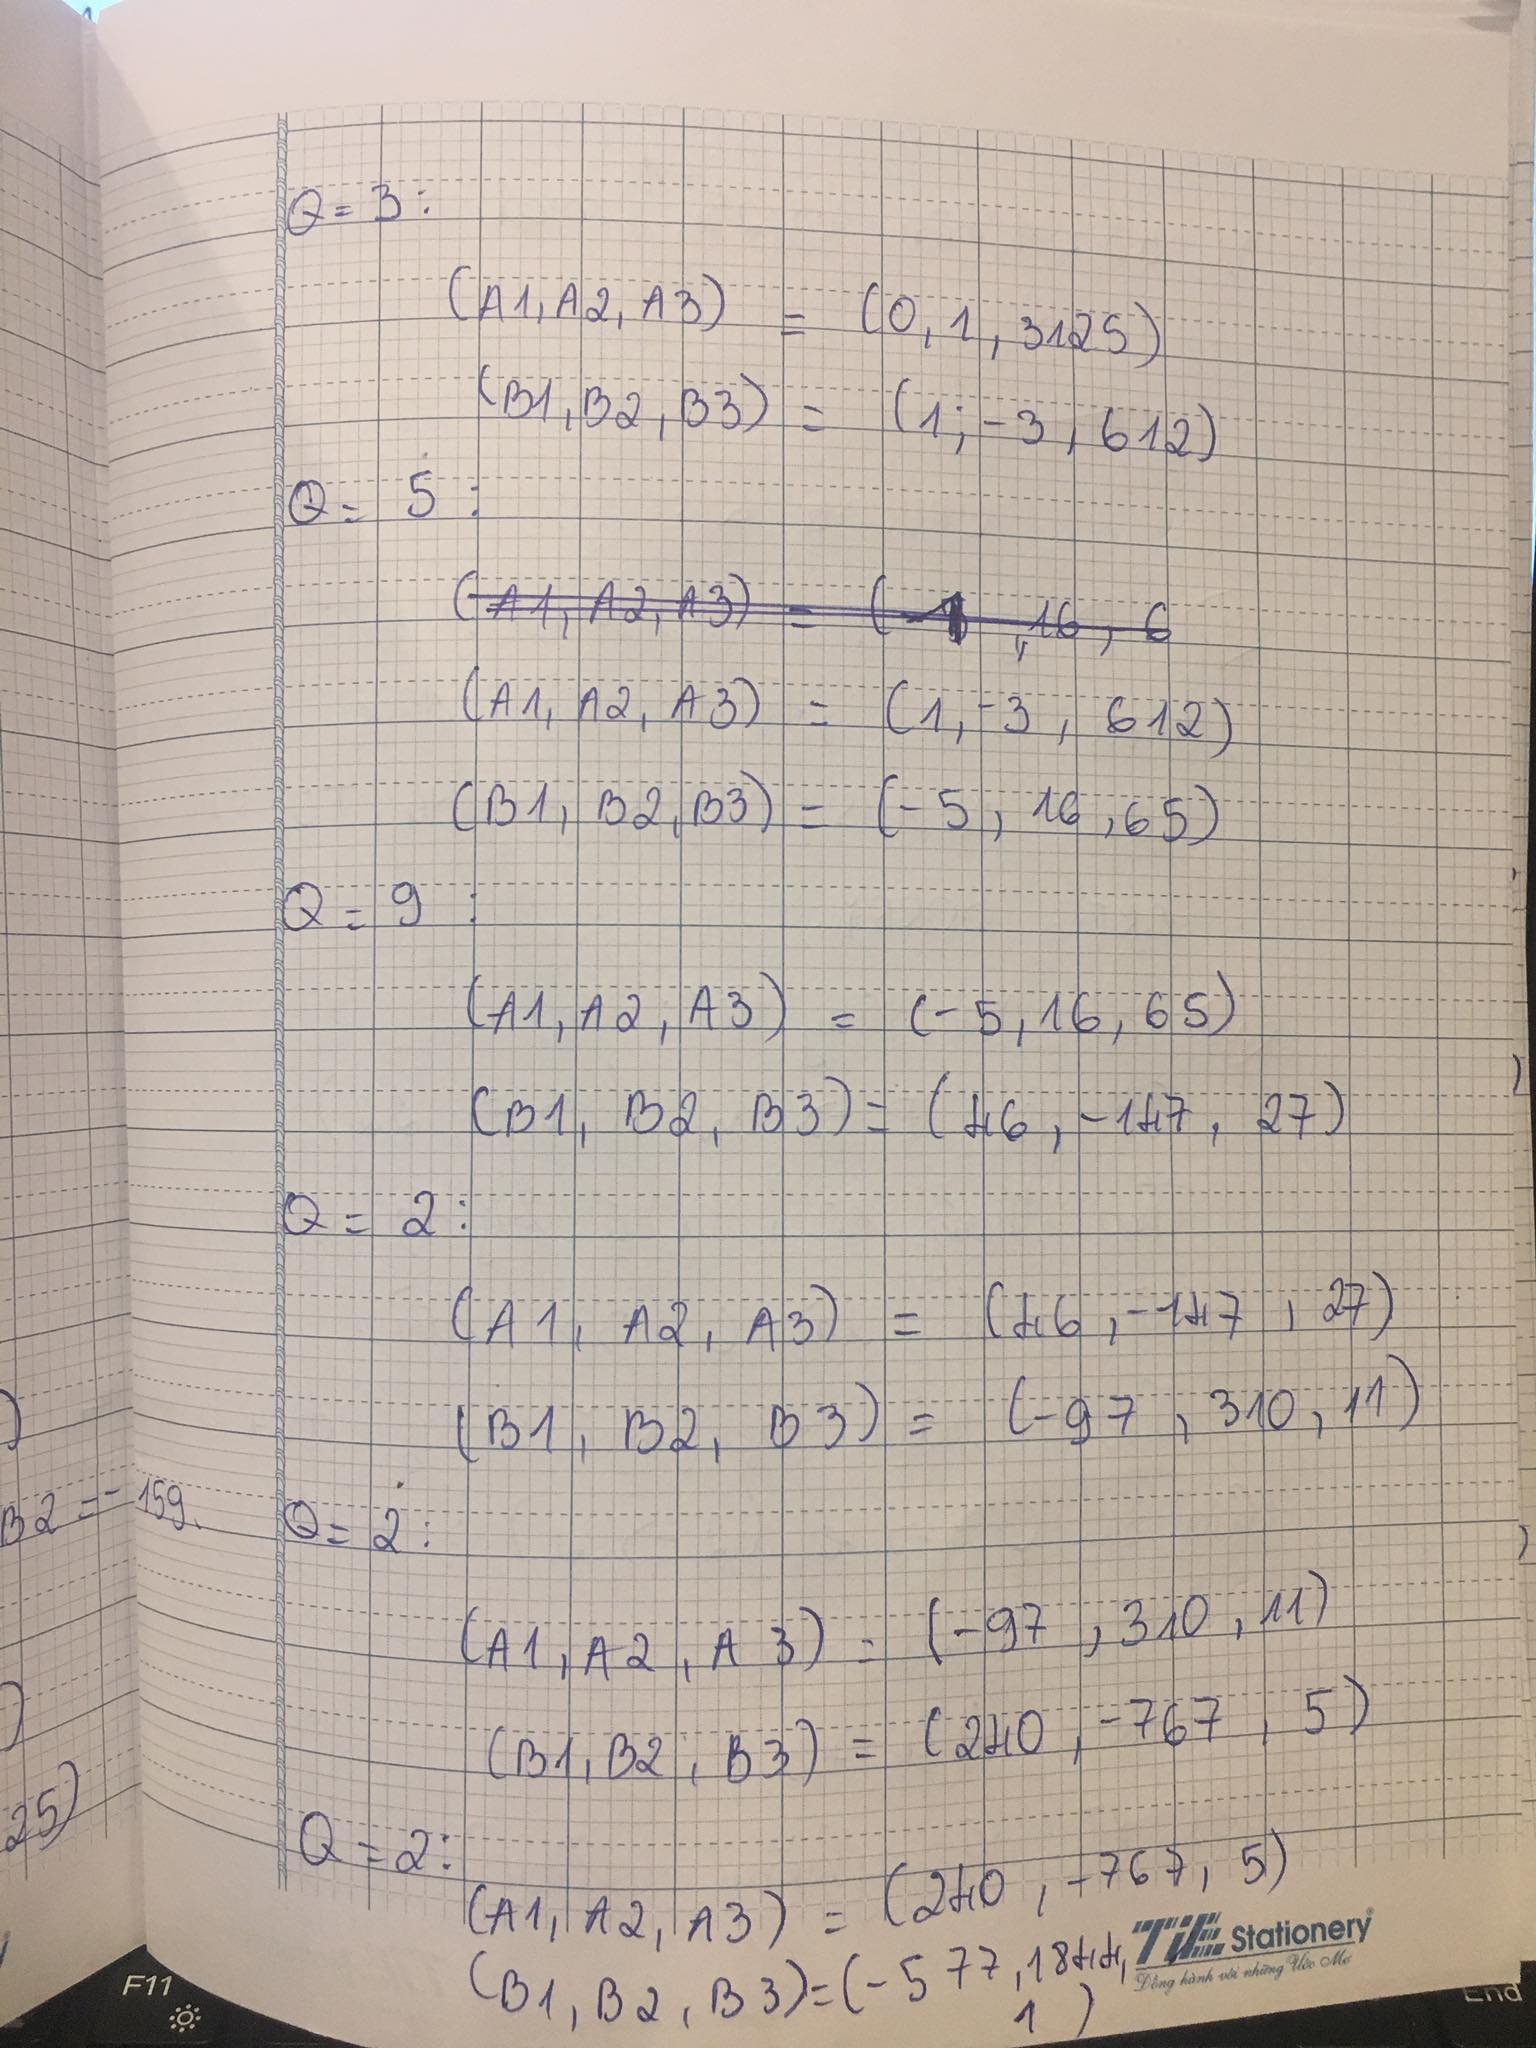 Q = 3 :
(A1, A2, A3) = (0, 1, 3125)
(B1, B2, B3) = (1; -3, 612)
Q = 5 :
(A1, A2, A3) = ( , 16, 6
(A1, A2, A3) = (1, -3, 612)
(B1, B2, B3) = (-5, 16, 65)
Q = 9 :
(A1, A2, A3) = (-5, 16, 65)
(B1, B2, B3) = (46, -147, 27)
Q = 2 :
(A1, A2, A3) = (46, -147, 27)
(B1, B2, B3) = (-97, 310, 11)
B2 = -159.
Q = 2 :
(A1, A2, A3) = (-97, 310, 11)
(B1, B2, B3) = (240, -767, 5)
25)
Q = 2 :
(A1, A2, A3) = (240, -767, 5)
(B1, B2, B3) = (-577, 1844,
1)
TiE Stationery
Đồng hành với những Ước Mơ
F11
End